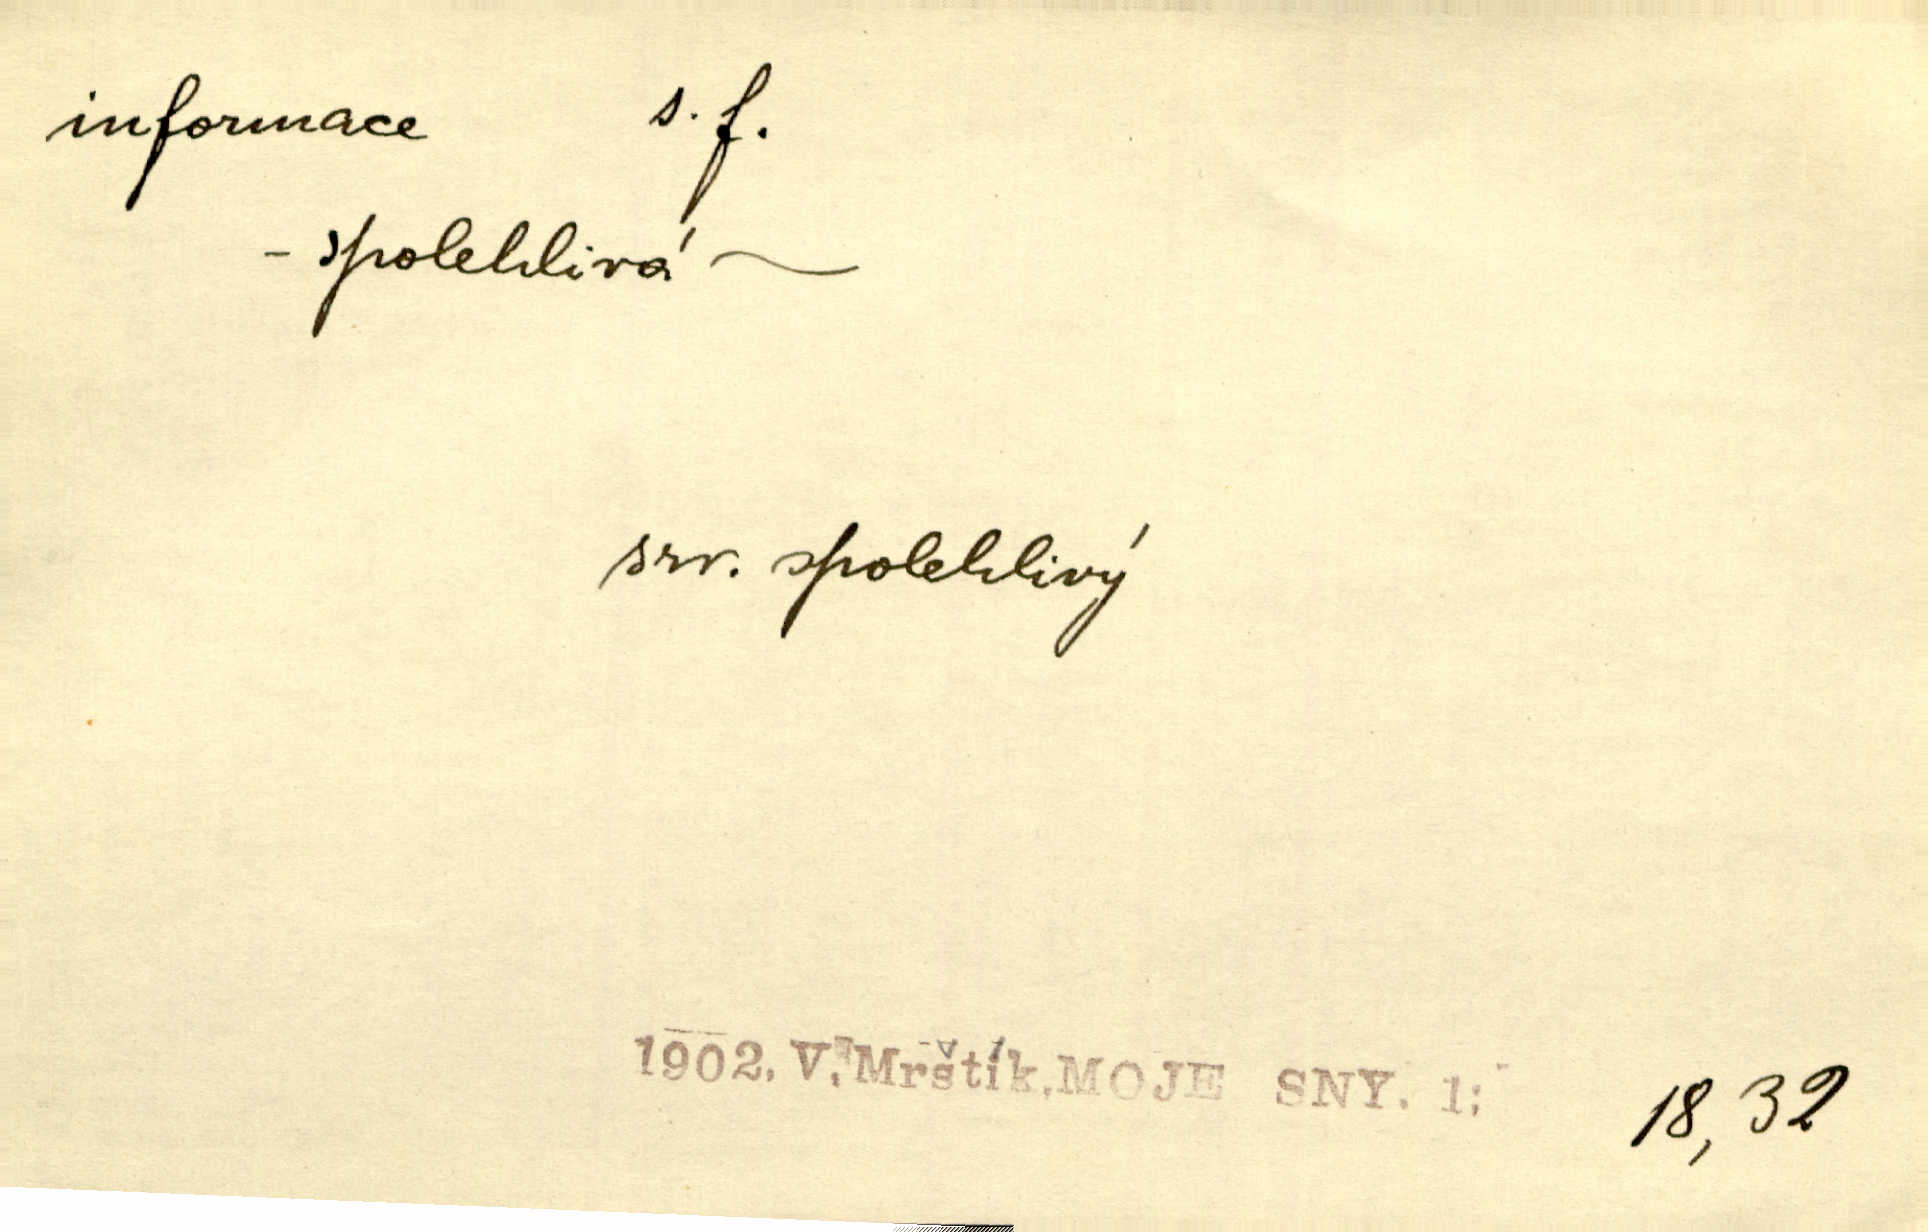 informace s. f.
- spolehlivá ~
srv. spolehlivý
1902. V. Mrštík. MOJE SNY. 1; 18, 32